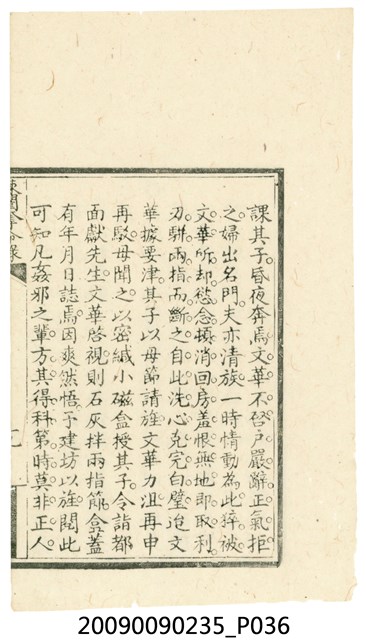 課其子昏夜奔焉文華不啓戶嚴辭正氣拒
之婦出名門夫亦清族一時情動為此猝被
文華所却慾念頓消回房羞恨無地即取利
刃駢兩指而斷之自此洗心克完白璧迨文
華據要津其子以母節請旌文華力沮再申
再駁母聞之以密緘小磁盒授其子令詣都
面獻先生文華啓視則石灰拌兩指節盒蓋
有年月日誌焉因爽然悟予建坊以旌閱此
可知凡姦邪之輩方其得科第時莫非正人
20090090235_P036